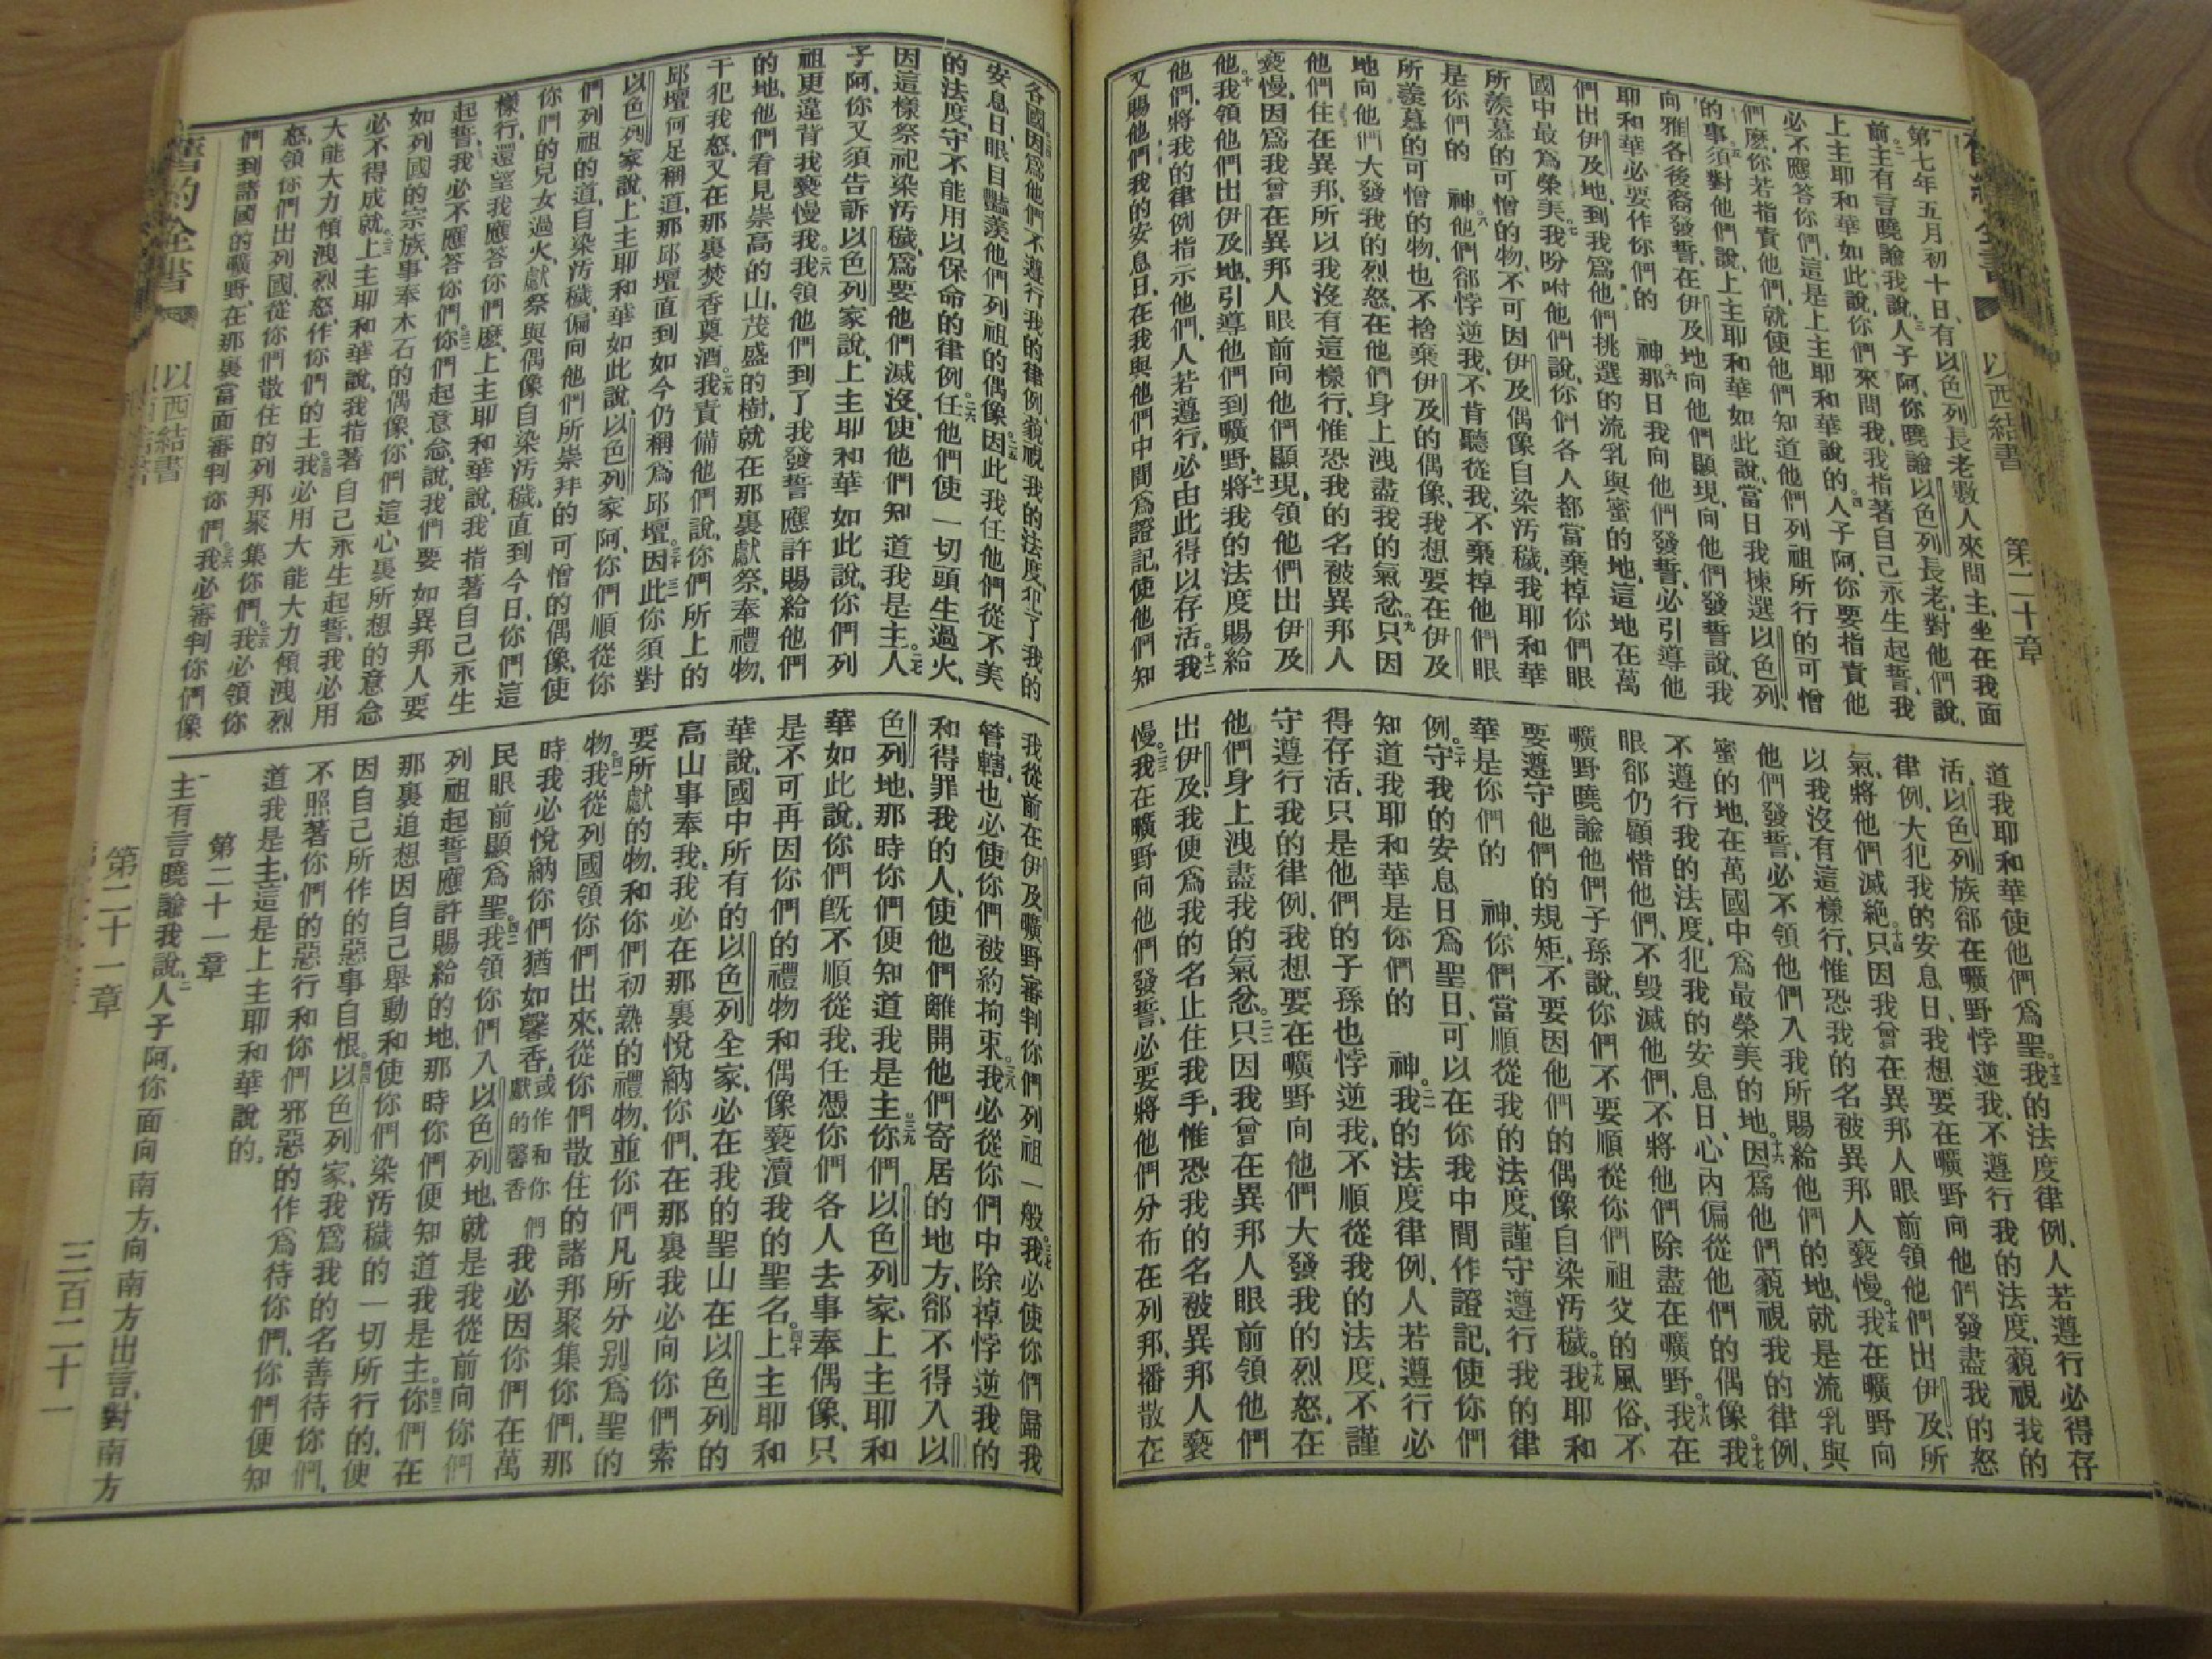 以西結書
第二十章
第七年五月初十日、有以色列長老數人來問主、坐在我面
前。二主有言曉諭我說、三人子阿、你曉諭以色列長老、對他們說、
上主耶和華如此說、你們來問我、我指著自己永生起誓、我
必不應答你們、這是上主耶和華說的。四人子阿、你要指責他
們麽、你若指責他們、就使他們知道他們列祖所行的可憎
的事。五須對他們說、上主耶和華如此說、當日我揀選以色列、
向雅各後裔發誓、在伊及地向他們顯現、向他們發誓說、我
耶和華必要作你們的 神。六那日我向他們發誓、必引導他
們出伊及地、到我爲他們挑選的流乳與蜜的地、這地在萬
國中最爲榮美。七我吩咐他們說、你們各人都當棄掉你們眼
所羨慕的可憎的物、不可因伊及偶像自染汚穢、我耶和華
是你們的 神。八他們卻悖逆我、不肯聽從我、不棄掉他們眼
所羨慕的可憎的物、也不捨棄伊及的偶像、我想要在伊及
地向他們大發我的烈怒、在他們身上洩盡我的氣忿。九只因
他們住在異邦、所以我沒有這樣行、惟恐我的名被異邦人
褻慢、因爲我曾在異邦人眼前向他們顯現、領他們出伊及
他。十我領他們出伊及地、引導他們到曠野、十一將我的法度賜給
他們、將我的律例指示他們、人若遵行、必由此得以存活。十二我
又賜他們我的安息日、在我與他們中間爲證記、使他們知
道我耶和華使他們爲聖。十三我的法度律例、人若遵行必得存
活、以色列族卻在曠野悖逆我、不遵行我的法度、藐視我的
律例、大犯我的安息日、我想要在曠野向他們發盡我的怒
氣、將他們滅絶。十四只因我曾在異邦人眼前領他們出伊及、所
以我沒有這樣行、惟恐我的名被異邦人褻慢。十五我在曠野向
他們發誓、必不領他們入我所賜給他們的地、就是流乳與
蜜的地、在萬國中爲最榮美的地。十六因爲他們藐視我的律例、
不遵行我的法度、犯我的安息日、心內偏從他們的偶像。十七我
眼卻仍顧惜他們、不毀滅他們、不將他們除盡在曠野。十八我在
曠野曉諭他們子孫說、你們不要順從你們祖父的風俗、不
要遵守他們的規矩、不要因他們的偶像自染汚穢。十九我耶和
華是你們的 神、你們當順從我的法度、謹守遵行我的律
例。二十守我的安息日爲聖日、可以在你我中間作證記、使你們
知道我耶和華是你們的 神。二一我的法度律例、人若遵行必
得存活、只是他們的子孫也悖逆我、不順從我的法度、不謹
守遵行我的律例、我想要在曠野向他們大發我的烈怒、在
他們身上洩盡我的氣忿。二二只因我曾在異邦人眼前領他們
出伊及、我便爲我的名止住我手、惟恐我的名被異邦人褻
慢。二三我在曠野向他們發誓、必要將他們分布在列邦、播散在
各國、二四因爲他們不遵行我的律例、藐視我的法度、犯了我的
安息日、眼目豔羨他們列祖的偶像。二五因此我任他們從不美
的法度、守不能用以保命的律例。二六任他們使一切頭生過火、
因這樣祭祀染汚穢、爲要他們滅沒、使他們知道我是主。二七人
子阿、你又須告訴以色列家說、上主耶和華如此說、你們列
祖更違背我褻慢我。二八我領他們到了我發誓應許賜給他們
的地、他們看見崇高的山、茂盛的樹、就在那裏獻祭、奉禮物、
干犯我怒、又在那裏焚香奠酒。二九我責備他們說、你們所上的
邱壇何足稱道、那邱壇直到如今仍稱爲邱壇。三十因此你須對
以色列家說、上主耶和華如此說、以色列家阿、你們順從你
們列祖的道、自染汚穢、偏向他們所崇拜的可憎的偶像、三一使
你們的兒女過火、獻祭與偶像自染汚穢、直到今日、你們這
樣行、還望我應答你們麽、上主耶和華說、我指著自己永生
起誓、我必不應答你們。三二你們起意念說、我們要如異邦人要
如列國的宗族、事奉木石的偶像、你們這心裏所想的意念
必不得成就。三三上主耶和華說、我指著自己永生起誓、我必用
大能大力傾洩烈怒、作你們的王。三四我必用大能大力傾洩烈
怒、領你們出列國、從你們散住的列邦聚集你們。三五我必領你
們到諸國的曠野、在那裏當面審判你們。三六我必審判你們像
我從前在伊及曠野審判你們列祖一般。三七我必使你們歸我
管轄、也必使你們被約拘束。三八我必從你們中除掉悖逆我的
和得罪我的人、使他們離開他們寄居的地方、卻不得入以
色列地、那時你們便知道我是主。三九你們以色列家、上主耶和
華如此說、你們旣不順從我、任憑你們各人去事奉偶像、只
是不可再因你們的禮物和偶像褻瀆我的聖名。四十上主耶和
華說、國中所有的以色列全家、必在我的聖山、在以色列的
高山事奉我、我必在那裏悅納你們、在那裏我必向你們索
要所獻的物、和你們初熟的禮物、並你們凡所分別爲聖的
物。四一我從列國領你們出來、從你們散住的諸邦聚集你們、那
時我必悅納你們猶如馨香、或作和你們獻的馨香我必因你們在萬
民眼前顯爲聖。四二我領你們入以色列地、就是我從前向你們
列祖起誓應許賜給的地、那時你們便知道我是主。四三你們在
那裏追想因自己舉動和使你們染汚穢的一切所行的、便
因自己所作的惡事自恨。四四以色列家、我爲我的名善待你們、
不照著你們的惡行和你們邪惡的作爲待你們、你們便知
道我是主、這是上主耶和華說的。
第二十一章
一主有言曉諭我說、二人子阿、你面向南方、向南方出言、對南方
舊約全書
以西結書
第二十一章
三百二十一